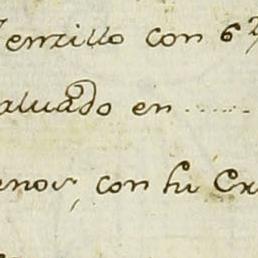 Tenzillo con 6
aluado en ......
enor, con su Cr